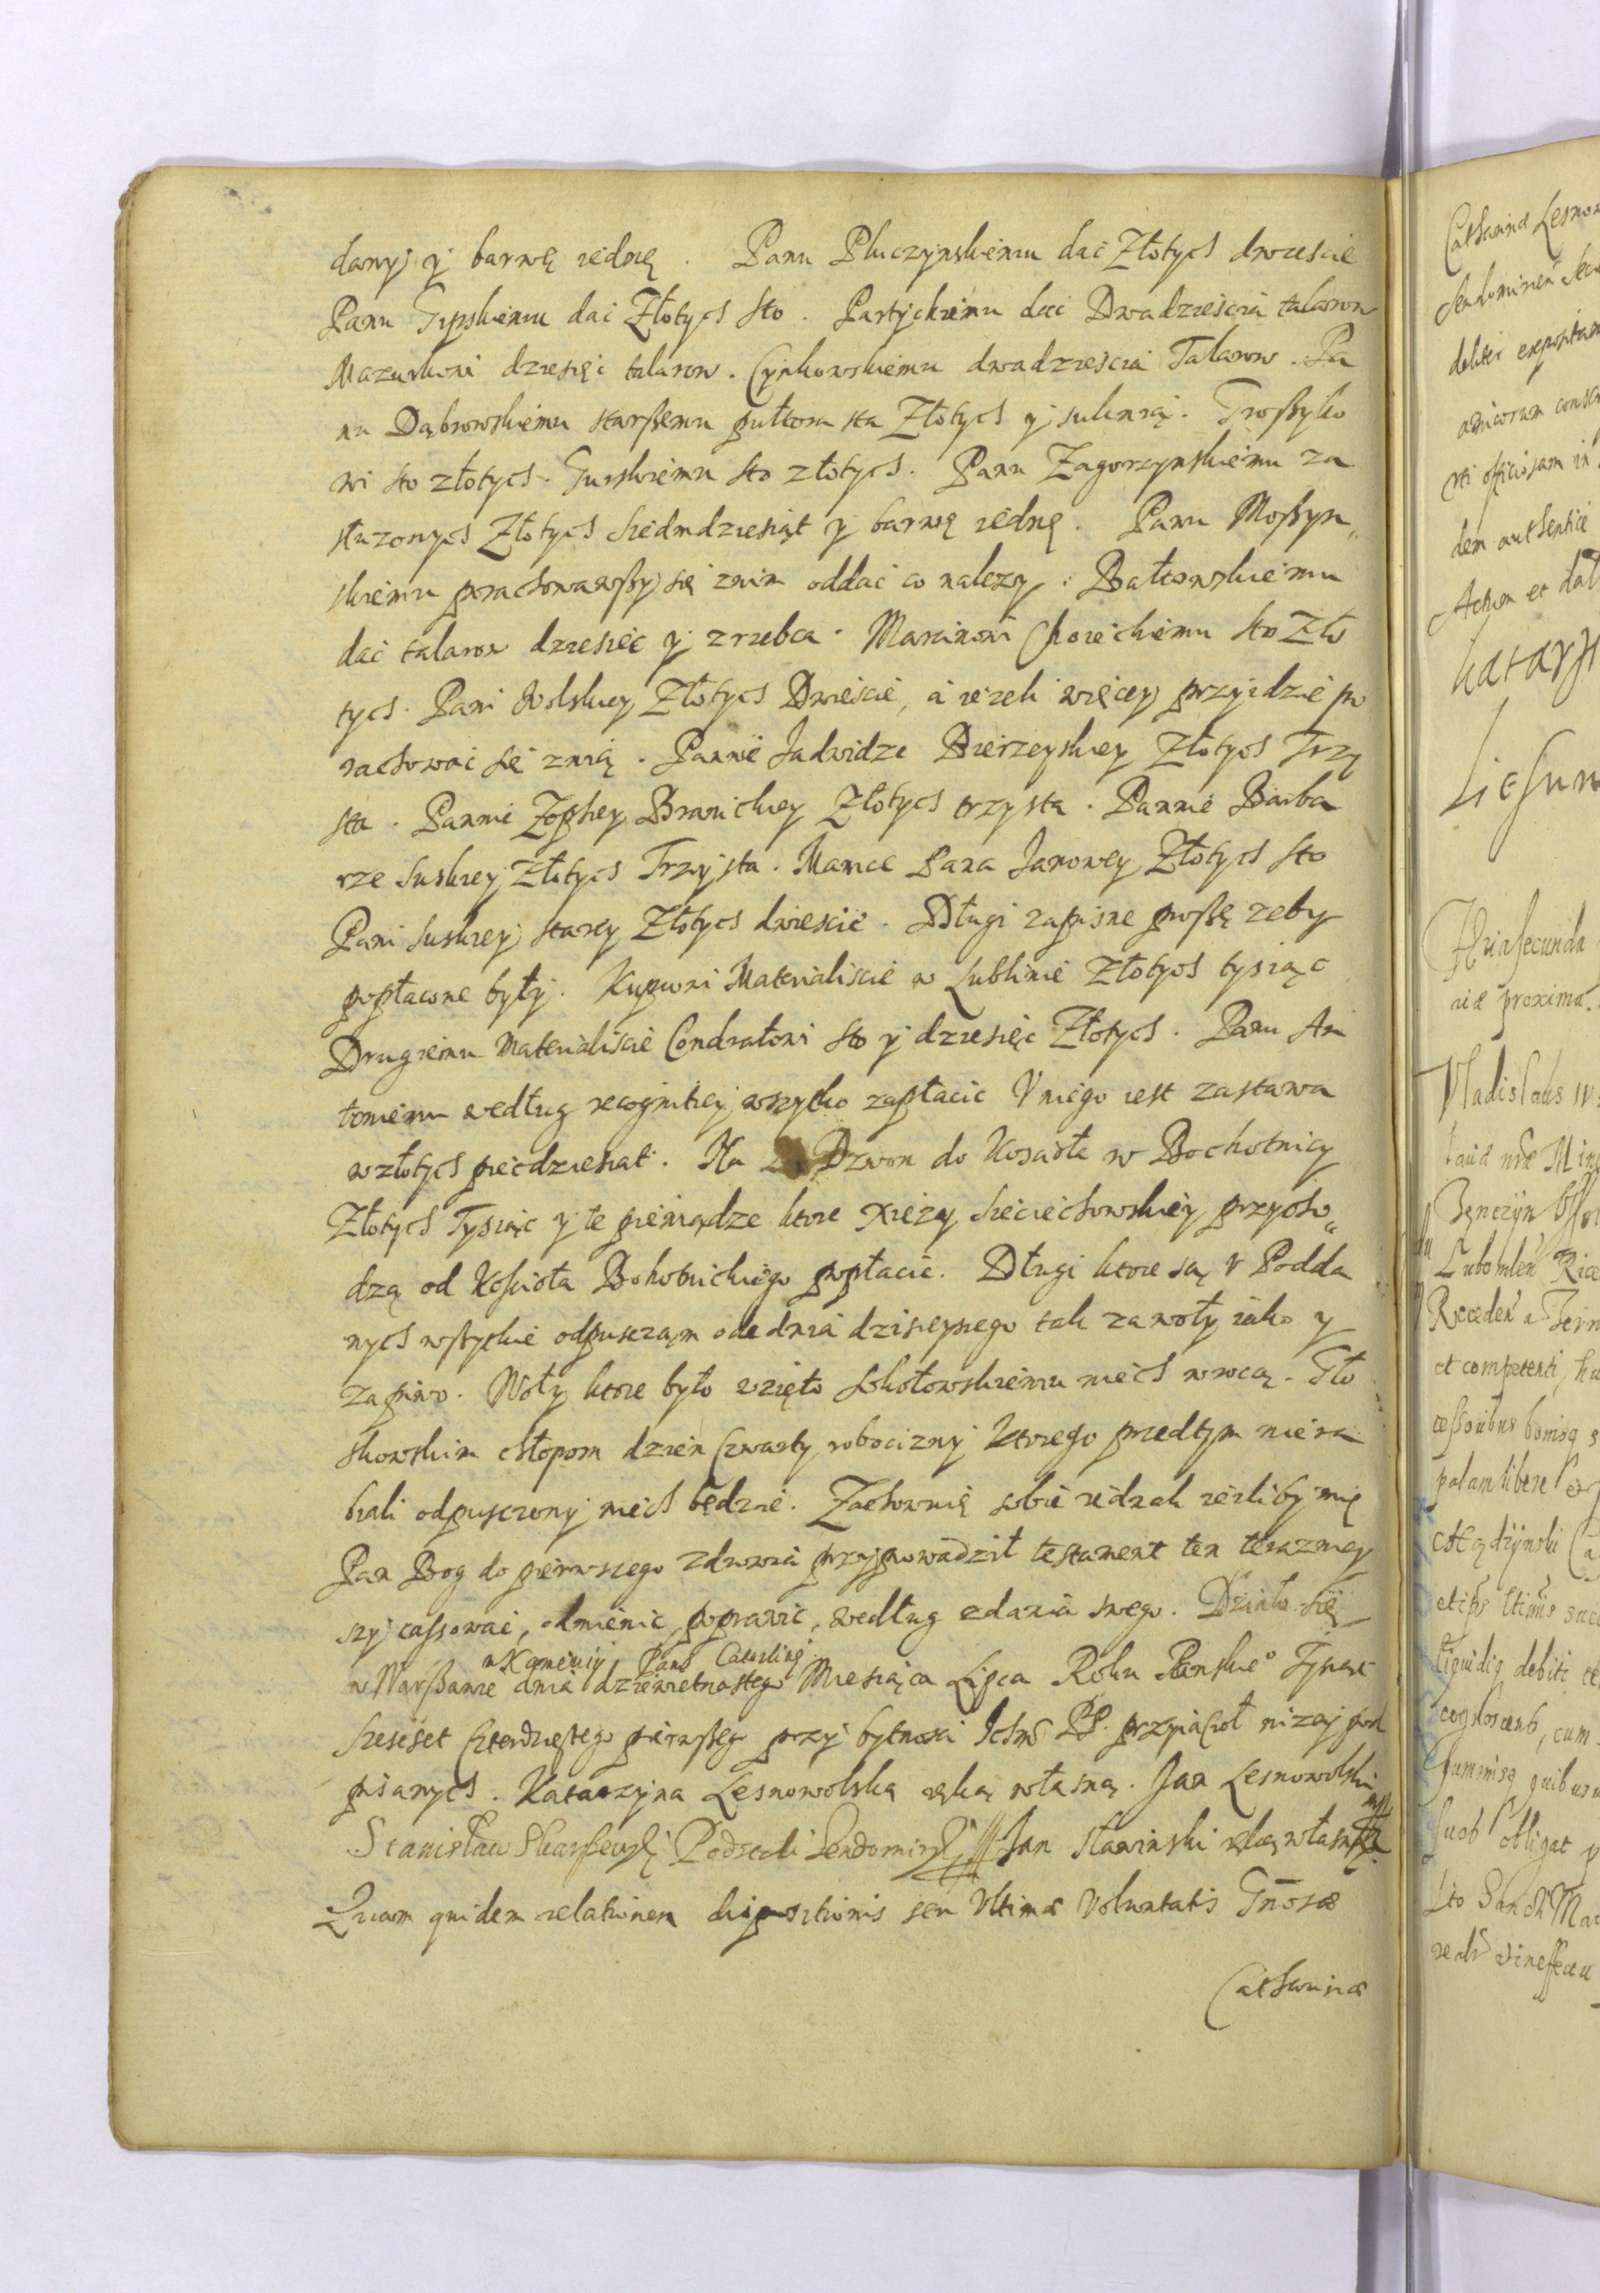 danyj y barwę iednę. Panu Pluczynskiemu dac Złotych dwiescie
Panu Trpskiemu dac Złotych sto. Partyckiemu dac Dwadziescia talarow
Mazurkowi dziesięc talarow. Cynkowskiemu dwadziescia Talarow. Pa
nu Dąbrowskiemu starßemu pułtora sta Złotych y suknią. Troßyko
wi sto złotych. Gurskiemu sto złotych. Panu Zagorzynskiemu za
słuzonych Złotych siedmdziesiąt y barwę iednę. Panu Moßyn„
skiemu porachowawßy się znim oddac co nalezy. Bałtowskiemu
dac talarow dziesiec y zrzebca. Marcinowi Choieckiemu sto Zło
tych. Pani Wolskiey Złotych Dwiescie, a iezeli więcey przyidzie po
rachowac się znią. Pannie Jadwidze Bierzeyskiey Złotych Trzy
sta. Pannie Zophiey Branickiey Złotych trzysta. Pannie Barba
rze Suskiey Złotych Trzysta. Mamce Pana Janowey Złotych sto
Pani Suskiey starey Złotych dwiescie. Długi zapisne proßę zeby
popłacone były. Kupcowi Materialiscie w Lublinie Złotych tysiąc
Drugiemu Materialiscie Condratowi sto y dziesięc Złotych. Panu An
toniemu według recognitiey wszytko zapłacic V niego iest zastawa
w złotych piecdziesiat. Na Dzwon do Kosciola w Bochotnicy
Złotych Tysiąc y te pieniądze ktore Xieży Sieciechowskiey przycho„
dzą od Kosciola Bohotnickiego popłacic. Długi ktore są v Podda
nych wßytkie odpusczam ode dnia dzisieyszego tak za woły iako y
za piwo. Woły ktore było wzięto Sokołowskiemu niech wrocą. Gło
skowskim chłopom dzien Czwarty robocizny ktorego przedtym nie ra
biali odpusczony niech będzie. Zachownię sobie iednak iezliby mię
Pan Bog do pierwszego zdrowia przyprowadził testament ten terazniey
szy cassowac, odmienic, poprawic, według zdania swego. Działo się
w Kamieniy Pans Casiliny
w Warßawie dnia dziewietnastego Miesiąca Lipca Roku Panskie° Tysiąc
szescset Czterdziestego pierwßego przy bytnosci Ichmć PP. przyiacioł nizey pod
pisanych. Katarzyna Lesnowolska ręką własną. Jan Lesnowolski
mp
Stanisław Skarßewski Podsedek Sendomirsk Jan Sławinski ręką własną
Quam quidem relationem dispositionis seu Vltimæ Voluntatis Gnosæ
Catharinæ
Catharinæ Lesnow
debite
amicorum
rti officiosam in
dem authentice
Actum et dat
Katarzy
Liesun
Feria secunda
riæ proxima
Vladislaus IV
Tęnczyn
Lubomlen
Receden a
et competenti,
cessoribus bonisq
palam libere
debiti
cum
Summisq quibus
obligat